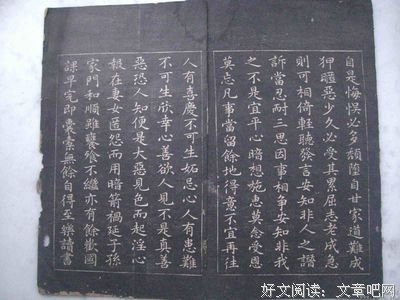 自是悔悞必多頹隳自甘家道難成
狎暱惡少久必受其累屈志老成急
則可相倚輕聽發言安知非人之譖
訴當忍耐三思因事相爭安知非我
之不是宜平心暗想施惠莫念受恩
莫忘凡事當留餘地得意不宜再往
人有喜慶不可生妬忌心人有患難
不可生欣幸心善欲人見不是真善
惡恐人知便是大惡見色而起淫心
報在妻女匿怨而用暗箭禍延子孫
家門和順雖饔飧不繼亦有餘歡國
課早完即囊橐無餘自得至樂讀書
好文阅读：文章吧网